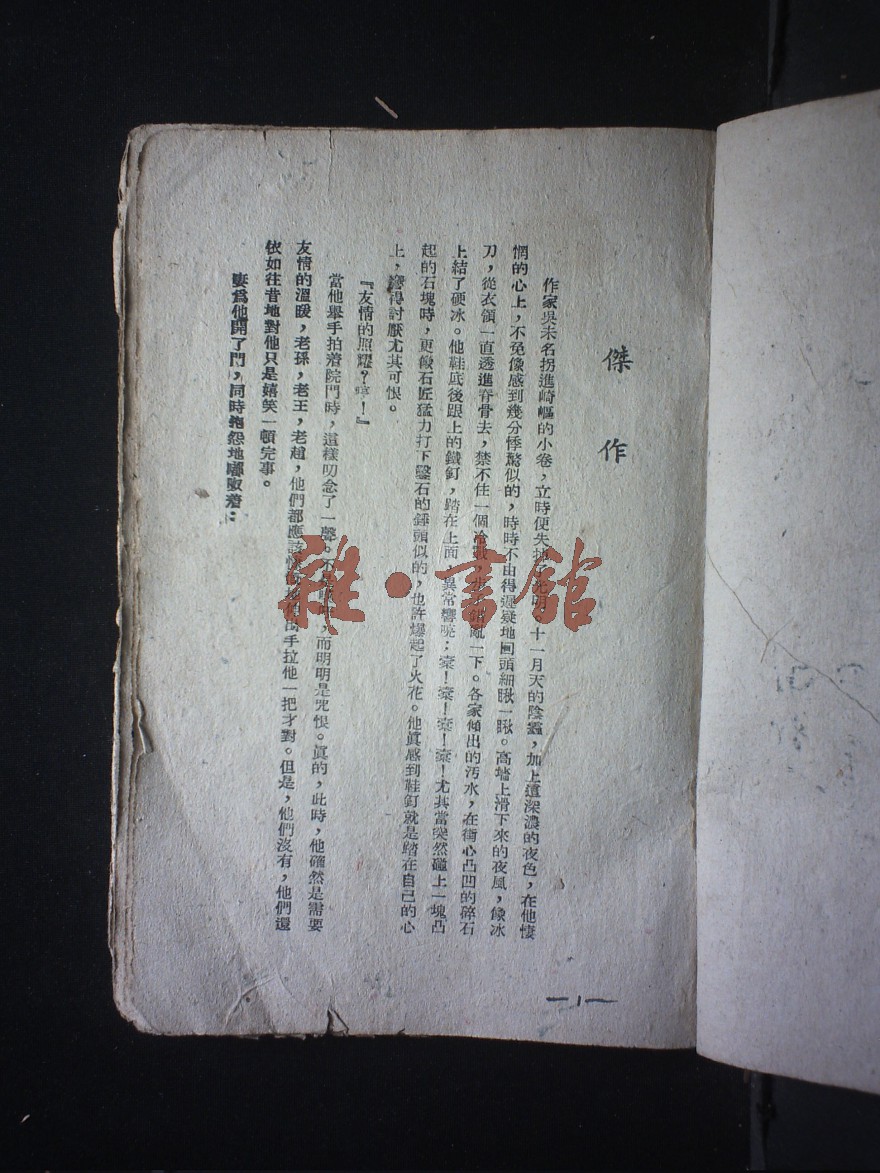 傑作
作家吳未名拐進崎嶇的小巷，立時便失掉了光明。十一月天的陰霾，加上這深濃的夜色，在他悽
惘的心上，不免像感到幾分悸驚似的，時時不由得遲疑地回頭細瞅一瞅。高墻上滑下來的夜風，像冰
刀，從衣領一直透進脊骨去，禁不住一個冷戰，亂一下。各家傾出的污水，在街心凸凹的碎石
上結了硬冰。他鞋底後跟上的鐵釘，踏在上面，異常響曉；橐！橐！橐！橐！尤其當突然碰上一塊凸
起的石塊時，更像石匠猛力打下鑿石的錘頭似的，也許爆起了火花。他眞感到鞋釘就是踏在自己的心
上，覺得討厭尤其可恨。
『友情的照耀？哼！』
當他舉手拍着院門時，這樣叨念了一聲。不，而明明是咒恨。眞的，此時，他確然是需要
友情的溫暖，老孫，老王，老趙，他們都應該手拉他一把才對。但是，他們沒有，他們還
依如往昔地對他只是嬉笑一頓完事。
妻爲他開了門，同時抱怨地嘟噥着：
—1—
雜·書館